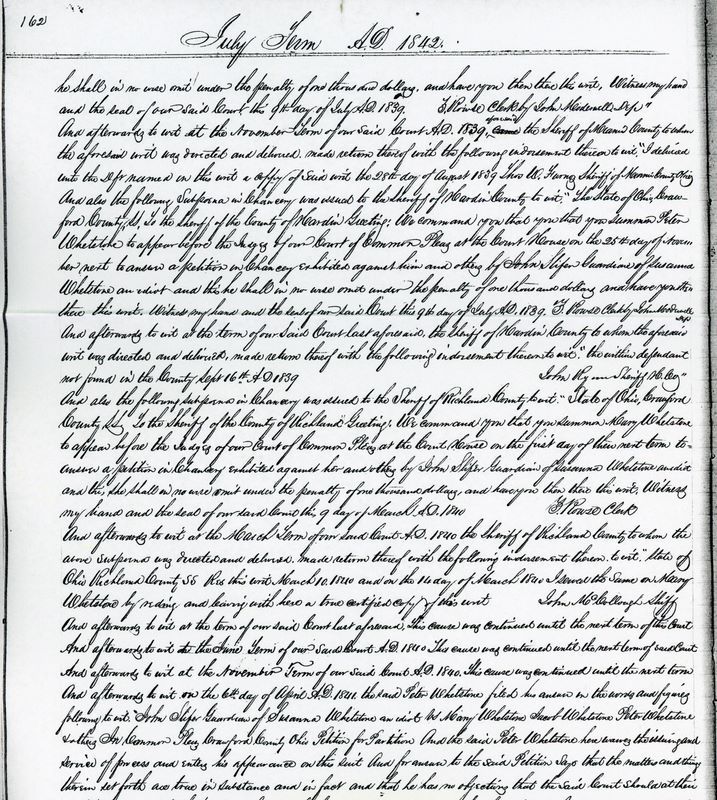 162
July Term A.D. 1842.
he shall in no wise omit under the penalty of one thousand dollars, and have you then there this writ, Witness my hand
and the seal of our Said Court this 9th day of July A.D. 1839. Z. Rowse Clerk by John Depy"
And afterwards to wit at the November Term of our Said Court A.D. 1839, aforesaid came the Sheriff of Miami County to whom
the aforesaid writ was directed and delivered, made return thereof with the following indorsement thereon to wit "I delivered
unto the Deft named in this writ a coppy of Said writ the 28th day of August 1839 Tho W. Furnas Sheriff of Miami County Ohio
And also the following Subpoena in Chancery was issued to the Sheriff of Hardin County to wit." The State of Ohio, Craw-
ford County, SS, To the Sheriff of the County of Hardin Greeting: We command you that you that you summon Peter
Whetstone to appear before the Judges of our Court of Common Pleas at the Court House on the 25th day of Novem-
ber next to answer a petition in Chancery exhibited against him and others by John Slifer Guardian of Susanna
Whetstone an idiot and this he shall in no wise omit under the penalty of one thousand dollars, and have you then
there this writ. Witness my hand and the seal of our Said Court this 9th day of July A.D. 1839. "Z. Rowse Clerk by John
And afterwards to wit at the term of our Said Court last aforesaid, the Sheriff of Hardin County to whom the aforesaid
writ was directed and delivered, made return thereof with the following indorsement thereon to wit: "the within defendant
not found in the County Sept 16th A.D 1839 John Ryan Sheriff H. Coy"
And also the following subpoena in Chancery was issued to the Sheriff of Richland County to wit. "State of Ohio, Crawford
County SS, To the Sheriff of the County of Richland Greeting: We command you that you summon Mary Whetstone
to appear before the Judges of our Court of Common Pleas at the Court House on the first day of their next term to
answer a petition in Chancery exhibited against her and others by John Slifer Guardian of Susanna Whetstone an idiot
and this she shall in no wise omit under the penalty of one thousand dollars, and have you then there this writ, Witness
my hand and the seal of our Said Court this 9 day of March A.D. 1840 Z. Rowse Clerk
And afterwards to wit at the March Term of our Said Court A.D. 1840 the Sheriff of Richland County to whom the
above subpoena was directed and delivered, made return thereof with the following indorsement thereon to wit. State of
Ohio Richland County SS Rec this writ March 10. 1840 and on the 14 day of March 1840 I served the Same on Marey
Whetstone by riding and leaving with here a true certified copy of this writ John McCollough Shff
And afterwards to wit at the term of our said Court last aforesaid. This cause was continued until the next term of this Court
And afterwards to wit at the June Term of our Said Court A.D. 1840 This cause was continued until the next term of said Court
And afterwards to wit at the November Term of our Said Court A.D. 1840. This cause was continued until the next term
And afterwards to wit on the 6th day of April A.D. 1841. the said Peter Whetstone filed his answer in the words and figures
following to wit. John Slifer Guardian of Susanna Whetstone an idiot Vs Mary Whetstone Jacob Whetstone Peter Whetstone
& others In Common Pleas Crawford County Ohio Petition for Partition And the said Peter Whetstone here waives the issuing and
service of process and enters his appearance on this suit And for answer to the said Petition Says that the matters and things
therein set forth are true in substance and in fact and that he has no objection that the Said Court should at their